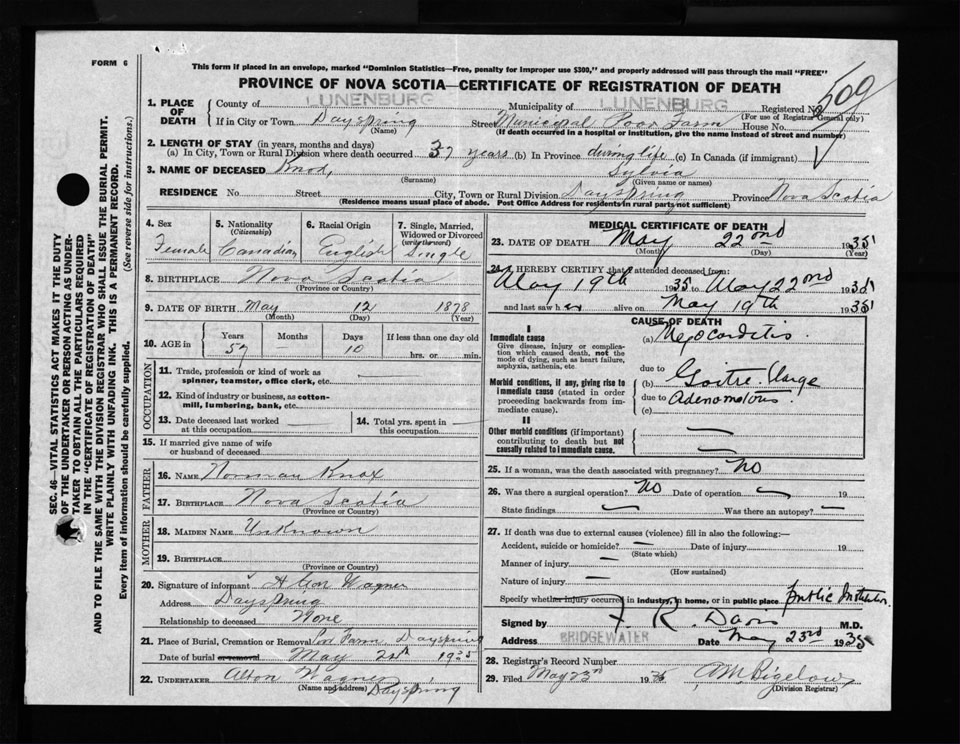 FORM 6
This form if placed in an envelope, marked "Dominion Statistics—Free, penalty for improper use $300," and properly addressed will pass through the mail "FREE"
PROVINCE OF NOVA SCOTIA—CERTIFICATE OF REGISTRATION OF DEATH
509
1. PLACE OF DEATH
County of LUNENBURG Municipality of LUNENBURG Registered No.
(For use of Registrar General only)
If in City or Town Dayspring Street Municipal Poor Farm House No.
(Name) (If death occurred in a hospital or institution, give the name instead of street and number)
2. LENGTH OF STAY (in years, months and days)
(a) In City, Town or Rural Division where death occurred 37 years (b) In Province during life (c) In Canada (if immigrant)
3. NAME OF DECEASED Knox, Sylvia
(Surname) (Given name or names)
RESIDENCE No Street City, Town or Rural Division Dayspring Province Nova Scotia
(Residence means usual place of abode. Post Office Address for residents in rural parts not sufficient)
4. Sex 5. Nationality (Citizenship) 6. Racial Origin 7. Single, Married, Widowed or Divorced (write the word)
Female Canadian English Single
8. BIRTHPLACE Nova Scotia
(Province or Country)
9. DATE OF BIRTH May 12 1878
(Month) (Day) (Year)
10. AGE in Years Months Days If less than one day old
57 10 hrs. or min.
OCCUPATION
11. Trade, profession or kind of work as spinner, teamster, office clerk, etc.
12. Kind of industry or business, as cotton-mill, lumbering, bank, etc.
13. Date deceased last worked at this occupation 14. Total yrs. spent in this occupation
15. If married give name of wife or husband of deceased
FATHER
16. NAME Norman Knox
17. BIRTHPLACE Nova Scotia
(Province or Country)
MOTHER
18. MAIDEN NAME Unknown
19. BIRTHPLACE
(Province or Country)
20. Signature of informant Alton Wagner
Address Dayspring
Relationship to deceased None
21. Place of Burial, Cremation or Removal Poor Farm Dayspring
Date of burial or removal May 24th 1935
22. UNDERTAKER Alton Wagner
(Name and address) Dayspring
MEDICAL CERTIFICATE OF DEATH
23. DATE OF DEATH May 22nd 1935
(Month) (Day) (Year)
24. I HEREBY CERTIFY that I attended deceased from:
May 19th 1935 to May 22nd 1935
and last saw her alive on May 19th 1935
CAUSE OF DEATH
I
Immediate cause
Give disease, injury or complication which caused death, not the mode of dying, such as heart failure, asphyxia, asthenia, etc.
(a) Myocarditis
due to
Morbid conditions, if any, giving rise to immediate cause (stated in order proceeding backwards from immediate cause).
(b) Goitre. Large
due to Adenomatous.
(c)
II
Other morbid conditions (if important) contributing to death but not causally related to immediate cause.
25. If a woman, was the death associated with pregnancy? No
26. Was there a surgical operation? No Date of operation 19
State findings Was there an autopsy?
27. If death was due to external causes (violence) fill in also the following:—
Accident, suicide or homicide? Date of injury 19
(State which)
Manner of injury
(How sustained)
Nature of injury
Specify whether injury occurred in industry, in home, or in public place Public Institution.
Signed by F. R. Davis M.D.
Address BRIDGEWATER Date May 23rd 1935
28. Registrar's Record Number
29. Filed May 23rd 1935 A M Bigelow
(Division Registrar)
SEC. 46—VITAL STATISTICS ACT MAKES IT THE DUTY
OF THE UNDERTAKER OR PERSON ACTING AS UNDER-
TAKER TO OBTAIN ALL THE PARTICULARS REQUIRED
IN THE "CERTIFICATE OF REGISTRATION OF DEATH"
AND TO FILE THE SAME WITH THE DIVISION REGISTRAR WHO SHALL ISSUE THE BURIAL PERMIT.
WRITE PLAINLY WITH UNFADING INK. THIS IS A PERMANENT RECORD.
Every item of information should be carefully supplied. (See reverse side for instructions.)